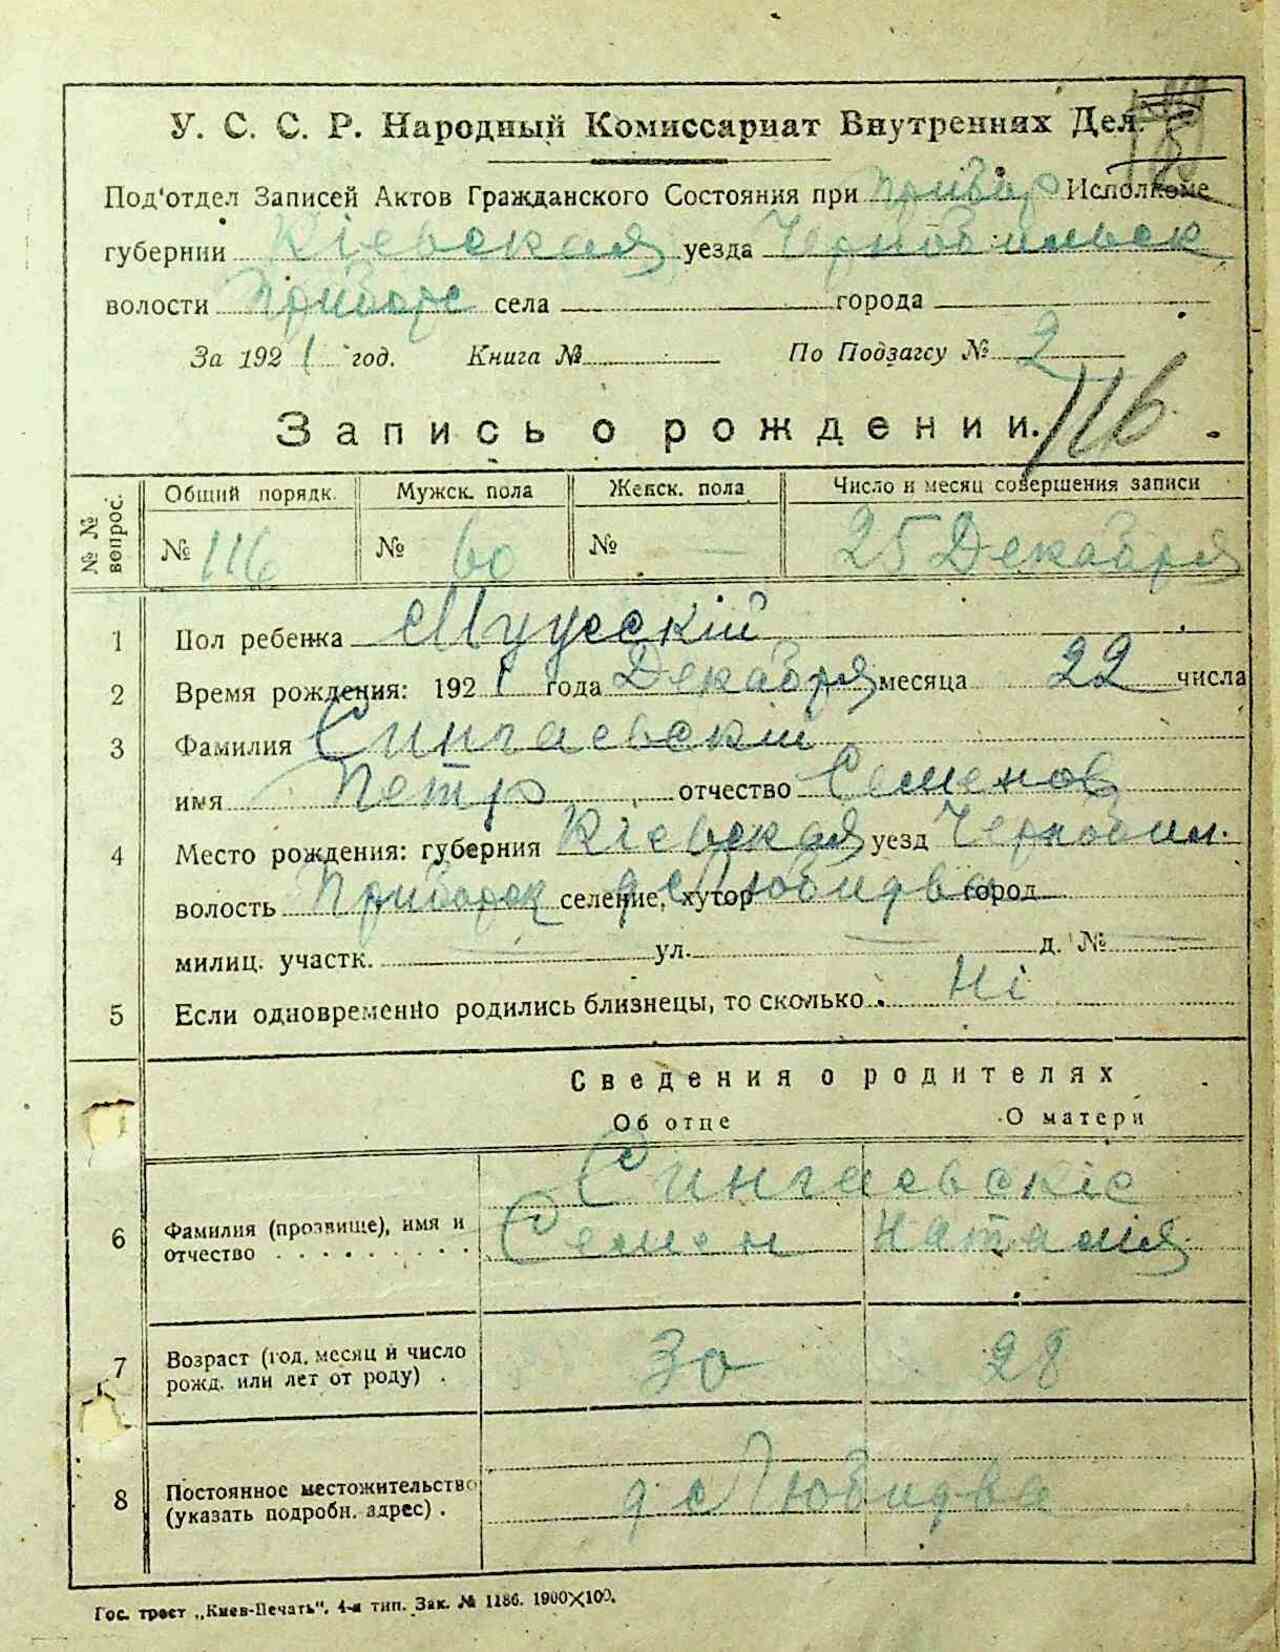 У. С. С. Р. Народный Комиссариат Внутренних Дел.
Под'отдел Записей Актов Гражданского Состояния при Прибор Исполкоме
губернии Кіевская уезда Чернобильск
волости Приборс села города
За 1921 год. Книга № По Подзагсу № 2
Запись о рождении. 116
№ № вопрос. Общий порядк. Мужск. пола Женск. пола Число и месяц совершения записи
№ 116 № 60 № — 25 Декабря
1 Пол ребенка Мужескій
2 Время рождения: 1921 года Декабря месяца 22 числа
3 Фамилия Сингаевскій
имя Петр отчество Семенов
4 Место рождения: губерния Кіевская уезд Чернобил.
волость Приборск селение, хутор д Любидва город
милиц. участк. — ул. — д. № —
5 Если одновременно родились близнецы, то сколько Ні
Сведения о родителях
Об отце О матери
Сингаевскіе
6 Фамилия (прозвище), имя и отчество Семен Наталія
7 Возраст (год, месяц и число рожд. или лет от роду) 30 28
8 Постоянное местожительство (указать подробн. адрес) д Любидва
Гос. трест „Киев-Печать". 4-я тип. Зак. № 1186. 1900×100.